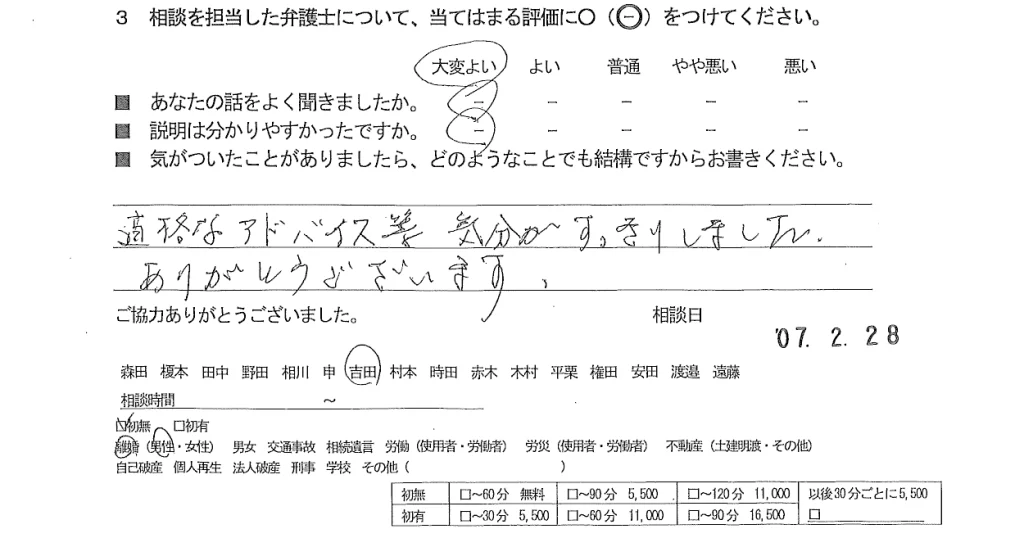 3 相談を担当した弁護士について、当てはまる評価に○(㊀)をつけてください。
大変よい よい 普通 やや悪い 悪い
■ あなたの話をよく聞きましたか。 － － － － －
■ 説明は分かりやすかったですか。 － － － － －
■ 気がついたことがありましたら、どのようなことでも結構ですからお書きください。
適格なアドバイス等 気分がすっきりしました.
ありがとうございます、
ご協力ありがとうございました。 相談日
'07. 2. 28
森田 榎本 田中 野田 相川 申 吉田 村本 時田 赤木 木村 平栗 権田 安田 渡邉 遠藤
相談時間 ～
☑初無 □初有
離婚(男性・女性) 男女 交通事故 相続遺言 労働(使用者・労働者) 労災(使用者・労働者) 不動産(土建明渡・その他)
自己破産 個人再生 法人破産 刑事 学校 その他( )
初無 □～60分 無料 □～90分 5,500 □～120分 11,000 以後30分ごとに5,500
初有 □～30分 5,500 □～60分 11,000 □～90分 16,500 □